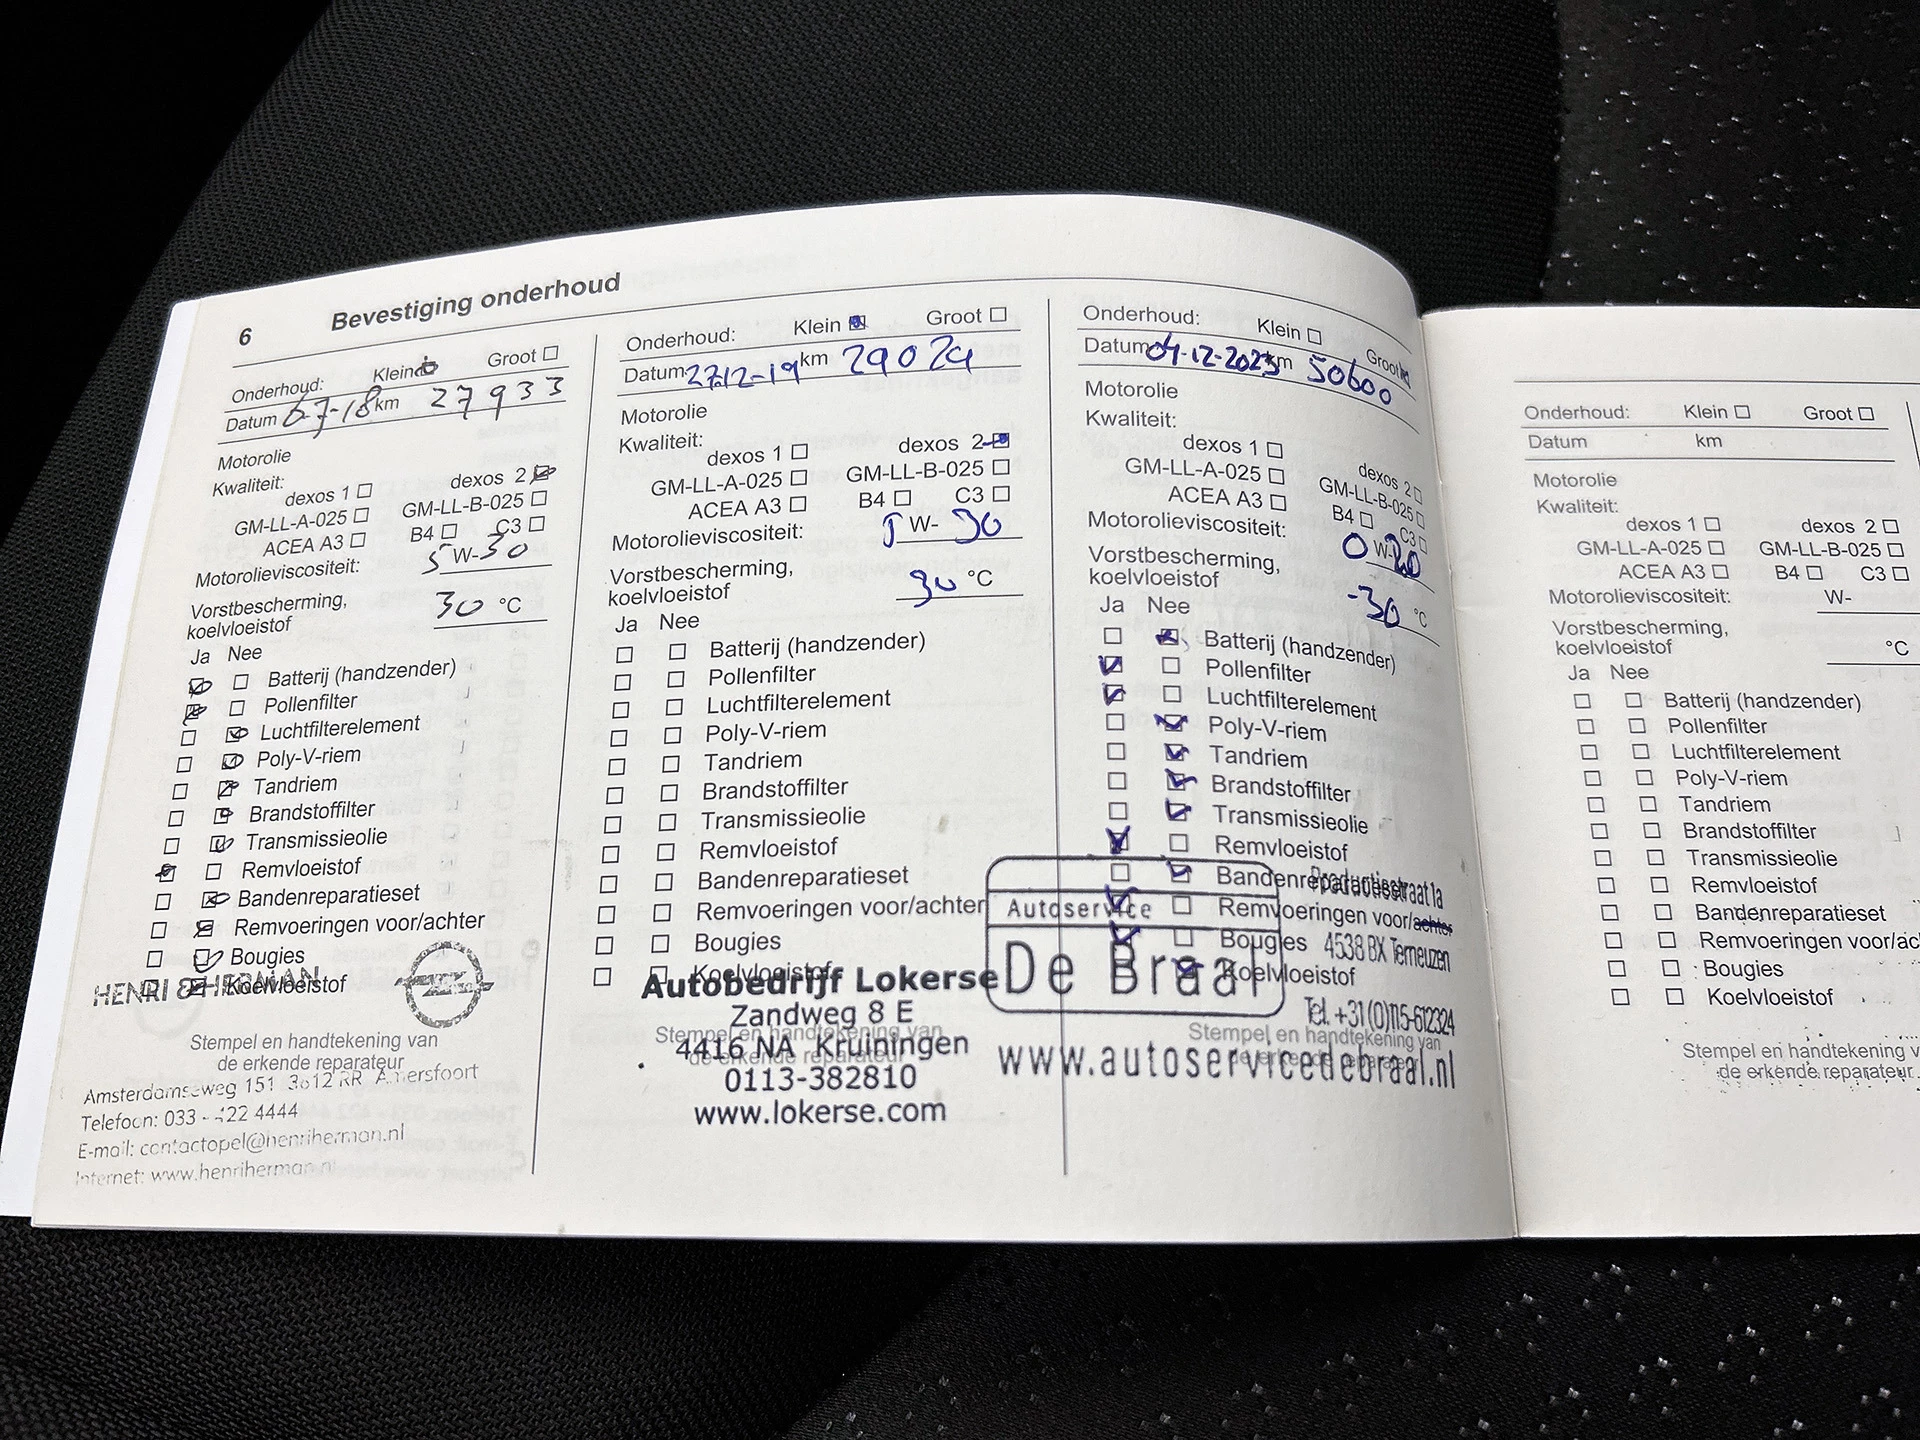 6 Bevestiging onderhoud
Onderhoud: Klein Groot
Datum 6-7-18 km 27933
Motorolie
Kwaliteit:
dexos 1 dexos 2
GM-LL-A-025 GM-LL-B-025
ACEA A3 B4 C3
Motorolieviscositeit: 5 W-30
Vorstbescherming,
koelvloeistof 30 °C
Ja Nee
Batterij (handzender)
Pollenfilter
Luchtfilterelement
Poly-V-riem
Tandriem
Brandstoffilter
Transmissieolie
Remvloeistof
Bandenreparatieset
Remvoeringen voor/achter
Bougies
Koelvloeistof
HENRI & HERMAN
Stempel en handtekening van
de erkende reparateur
Amsterdamseweg 151 3812 RR Amersfoort
Telefoon: 033 - 422 4444
E-mail: contactopel@henriherman.nl
Internet: www.henriherman.nl
Onderhoud: Klein Groot
Datum 27-12-19 km 29024
Motorolie
Kwaliteit:
dexos 1 dexos 2
GM-LL-A-025 GM-LL-B-025
ACEA A3 B4 C3
Motorolieviscositeit: 5 W- 30
Vorstbescherming,
koelvloeistof 30 °C
Ja Nee
Batterij (handzender)
Pollenfilter
Luchtfilterelement
Poly-V-riem
Tandriem
Brandstoffilter
Transmissieolie
Remvloeistof
Bandenreparatieset
Remvoeringen voor/achter
Bougies
Koelvloeistof
Autobedrijf Lokerse
Zandweg 8 E
Stempel en handtekening van
4416 NA Kruiningen
de erkende reparateur
0113-382810
www.lokerse.com
Onderhoud: Klein Groot
Datum 04-12-2023 km 50600
Motorolie
Kwaliteit:
dexos 1 dexos 2
GM-LL-A-025 GM-LL-B-025
ACEA A3 B4 C3
Motorolieviscositeit: 0 W-20
Vorstbescherming,
koelvloeistof -30 °C
Ja Nee
Batterij (handzender)
Pollenfilter
Luchtfilterelement
Poly-V-riem
Tandriem
Brandstoffilter
Transmissieolie
Remvloeistof
Bandenreparatieset
Productiestraat 1a
Remvoeringen voor/achter
Autoservice
Bougies
4538 BX Terneuzen
De Braal
Koelvloeistof
Tel. +31(0)115-612324
Stempel en handtekening van
de erkende reparateur
www.autoservicedebraal.nl
Onderhoud: Klein Groot
Datum km
Motorolie
Kwaliteit:
dexos 1 dexos 2
GM-LL-A-025 GM-LL-B-025
ACEA A3 B4 C3
Motorolieviscositeit: W-
Vorstbescherming,
koelvloeistof °C
Ja Nee
Batterij (handzender)
Pollenfilter
Luchtfilterelement
Poly-V-riem
Tandriem
Brandstoffilter
Transmissieolie
Remvloeistof
Bandenreparatieset
Remvoeringen voor/ac
Bougies
Koelvloeistof
Stempel en handtekening v
de erkende reparateur